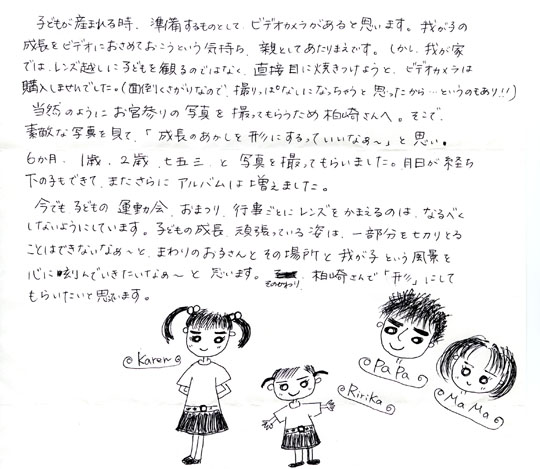 子どもが産まれる時、準備するものとして、ビデオカメラがあると思います。我が子の
成長をビデオにおさめておこうという気持ち、親としてあたりまえです。しかし、我が家
では、レンズ越しに子どもを観るのではなく、直接目に焼きつけようと、ビデオカメラは
購入しませんでした。(面倒くさがりなので、撮りっぱなしになっちゃうと思ったから…というのもあり!!)
当然のようにお宮参りの写真を撮ってもらうため柏崎さんへ。そこで、
素敵な写真を見て、「成長のあかしを形にするっていいなぁ〜」と思い、
6か月、1歳、2歳、七五三、と写真を撮ってもらいました。月日が経ち
下の子もできて、またさらにアルバムは増えました。
今でも子どもの運動会、おまつり、行事ごとにレンズをかまえるのは、なるべく
しないようにしています。子どもの成長、頑張っている姿は、一部分を切りとる
ことはできないなぁ〜と、まわりのお子さんとその場所と我が子という風景を
心に刻んでいきたいなぁ〜と思います。そのかわり、柏崎さんで「形」にして
もらいたいと思います。
Karen
PaPa
MaMa
Ririka